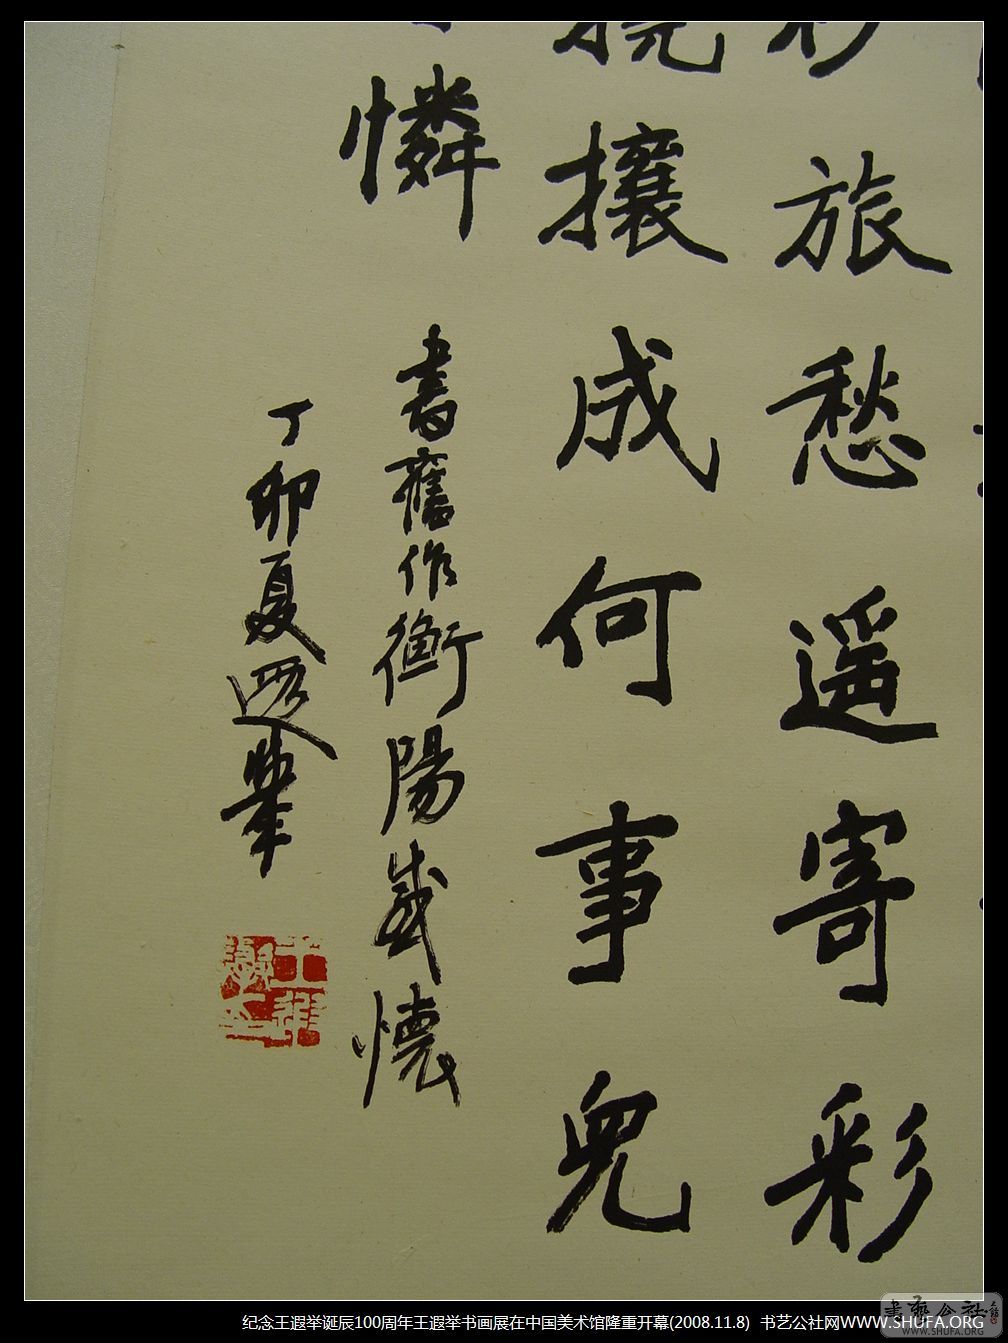 旅愁遥寄彩
攘成何事兒
憐
書舊作衡陽感懷
丁卯夏遐舉
纪念王遐举诞辰100周年王遐举书画展在中国美术馆隆重开幕(2008.11.8) 书艺公社网WWW.SHUFA.ORG
書艺公社
WWW.SHUFA.ORG